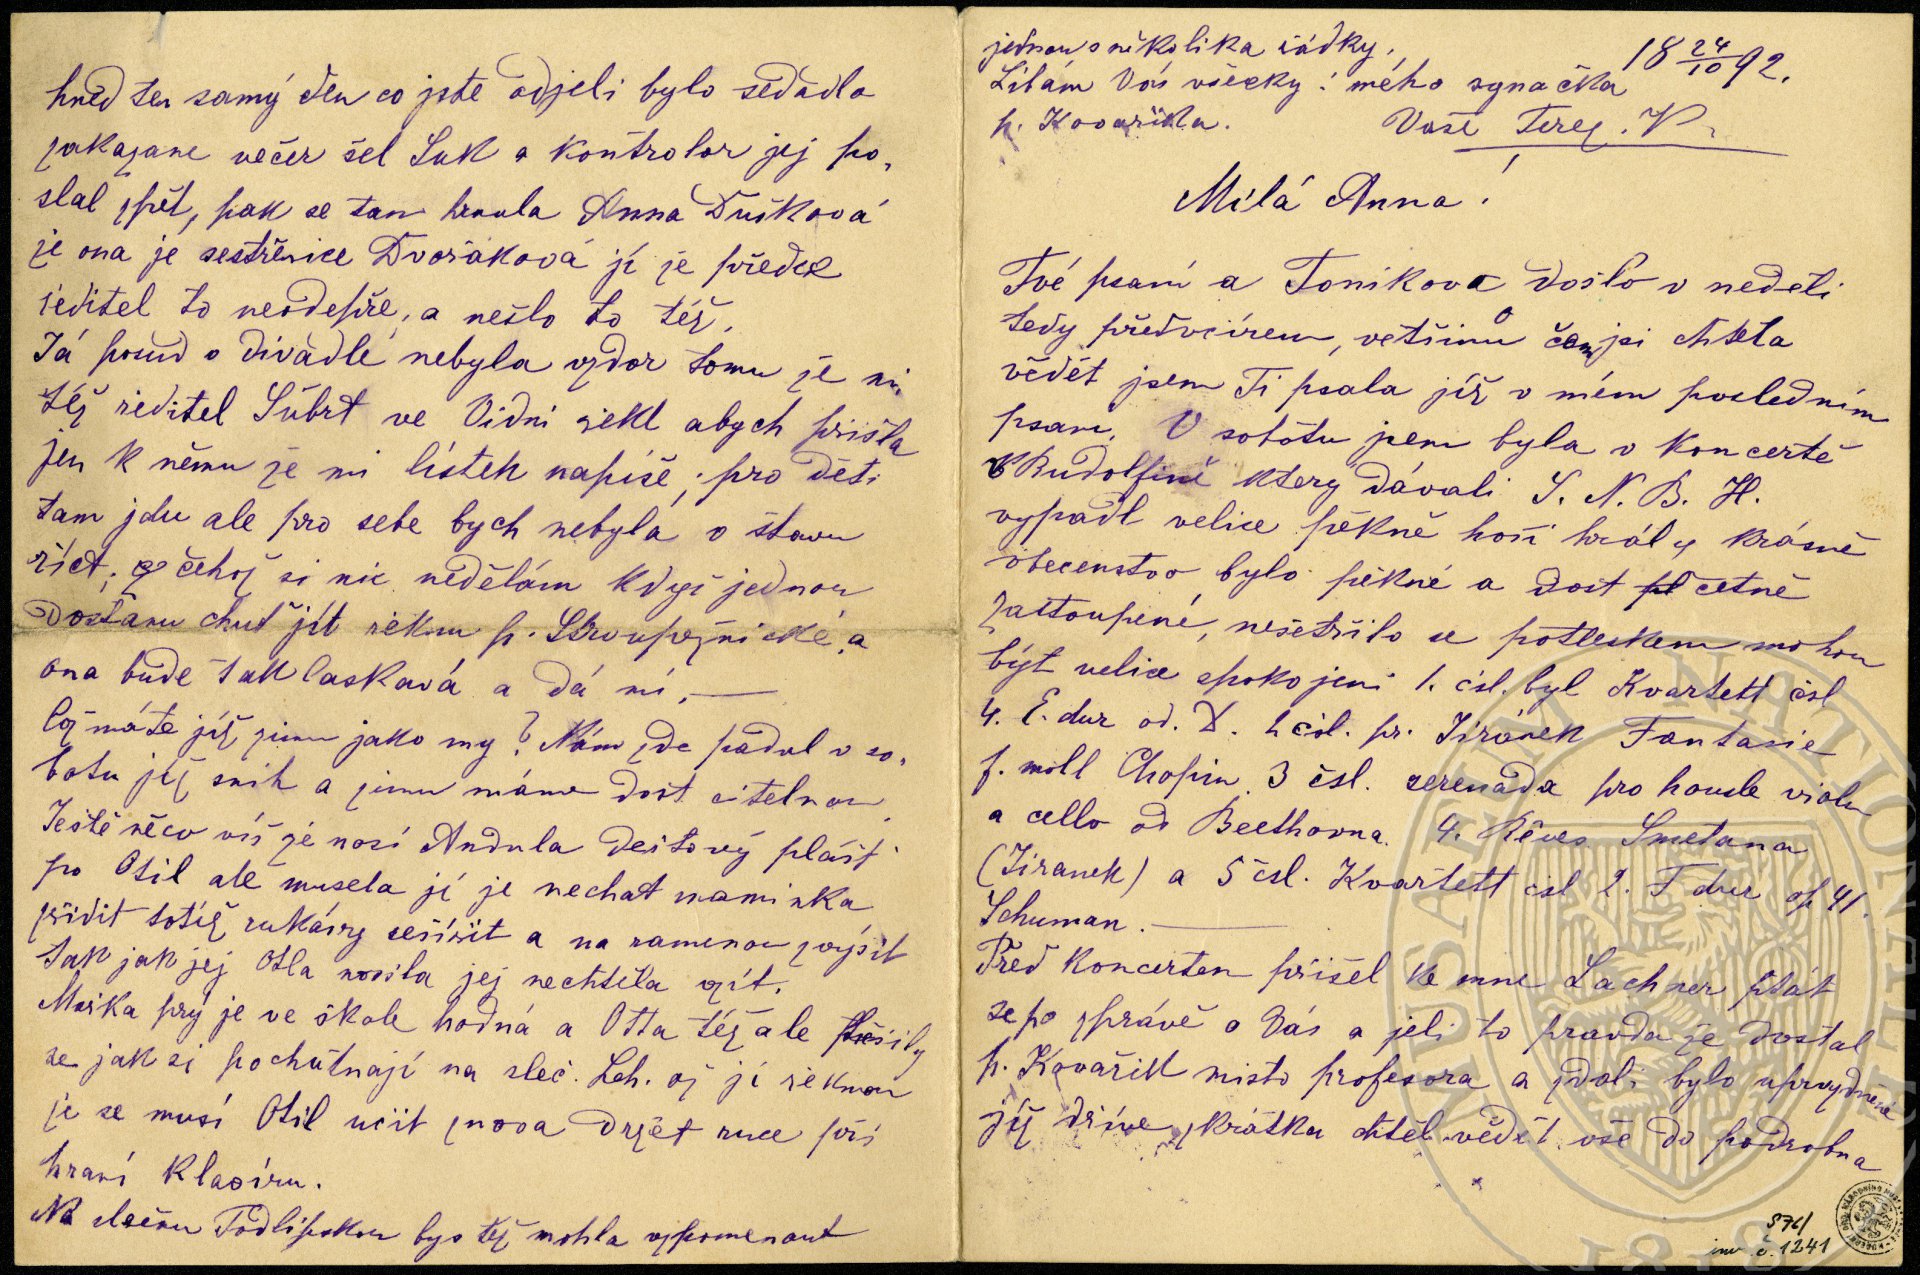 jednou o několika řádky.
Líbám Vás všecky i mého synáčka
p. Kovaříka.
Vaše Terez. K.
18 24/10 92.
Milá Anna!
Tvé psaní a Toníkova došlo v neděli
tedy předvčírem, většinu o čem jsi chtěla
vědět jsem Ti psala jíž v mém posledním
psaní. V sobótu jsem byla v koncertě
v Rudolfině ktery dávali S. N. B. H.
vypadl velice pěkně hoši hrály krásně
obecenstvo bylo pěkné a dost četně
zastoupené, nešetřilo se potleskem mohou
být velice spokojeni 1. čsl. byl Kvartett čsl
4. E. dur od. D. 2 čísl. pr. Jiránek Fantasie
f. moll Chopin 3 čsl. serenáda pro housle violu
a cello od Beethovna. 4. Rêves Smetana
(Jiranek) a 5 čsl. Kvartett čsl 2. F dur op 41.
Schuman.
Před koncertem přišel ke mne Lachner ptát
se po zprávě o Vás a jeli to pravda že dostal
p. Kovařík misto profesora a zdali bylo uprazdněné
jíž dříve zkrátka chtěl vědět vše do podrobna
hned ten samý den co jste odjeli bylo sedadlo
zakazane večer šel Suk a kontrolor jej po-
slal zpět, pak se tam hrnula Anna Dušková
že ona je sestřenice Dvořáková jí že předce
ředitel to neodepře, a nešlo to též.
Já posud v divadle nebyla vzdor tomu že mi
též ředitel Šubrt ve Vidni řekl abych přišla
jen k němu že mi lístek napíše, pro děti
tam jdu ale pro sebe bych nebyla v stavu
říct, z čehož si nic nedělám když jednou
dostanu chuť jít řeknu p. Stroupežnické, a
ona bude tak laskavá a dá mi,
Což máte jíž zimu jako my? Nám zde padal v so-
botu jíž snih a zimu máme dost citelnou
Ještě něco víš že nosí Andula dešťový plášť
po Otil ale musela jí je nechat maminka
přidit totiž rukávy sešířit a na ramenou zvýšit
tak jak jej Otla nosila jej nechtěla vzít.
Mařka prý je ve škole hodná a Otta též ale těšily
se jak si pochutnají na sleč. Leh. až jí řeknou
že se musí Otil učit znova držet ruce při
hraní klavíru.
Na slečnu Podlipskou bys též mohla vzpomenout
576/
inv. č. 1241
MUSAEUM NATIONALE PR
1818